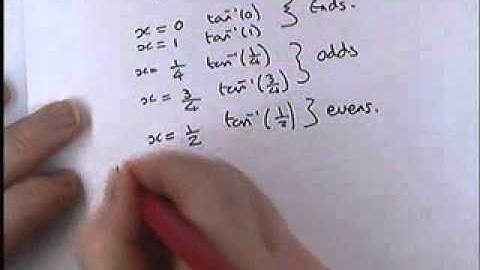 x = 0 tan⁻¹(0) } Ends.
x = 1 tan⁻¹(1)
x = 1/4 tan⁻¹(1/4) } odds
x = 3/4 tan⁻¹(3/4)
x = 1/2 tan⁻¹(1/2) } evens.